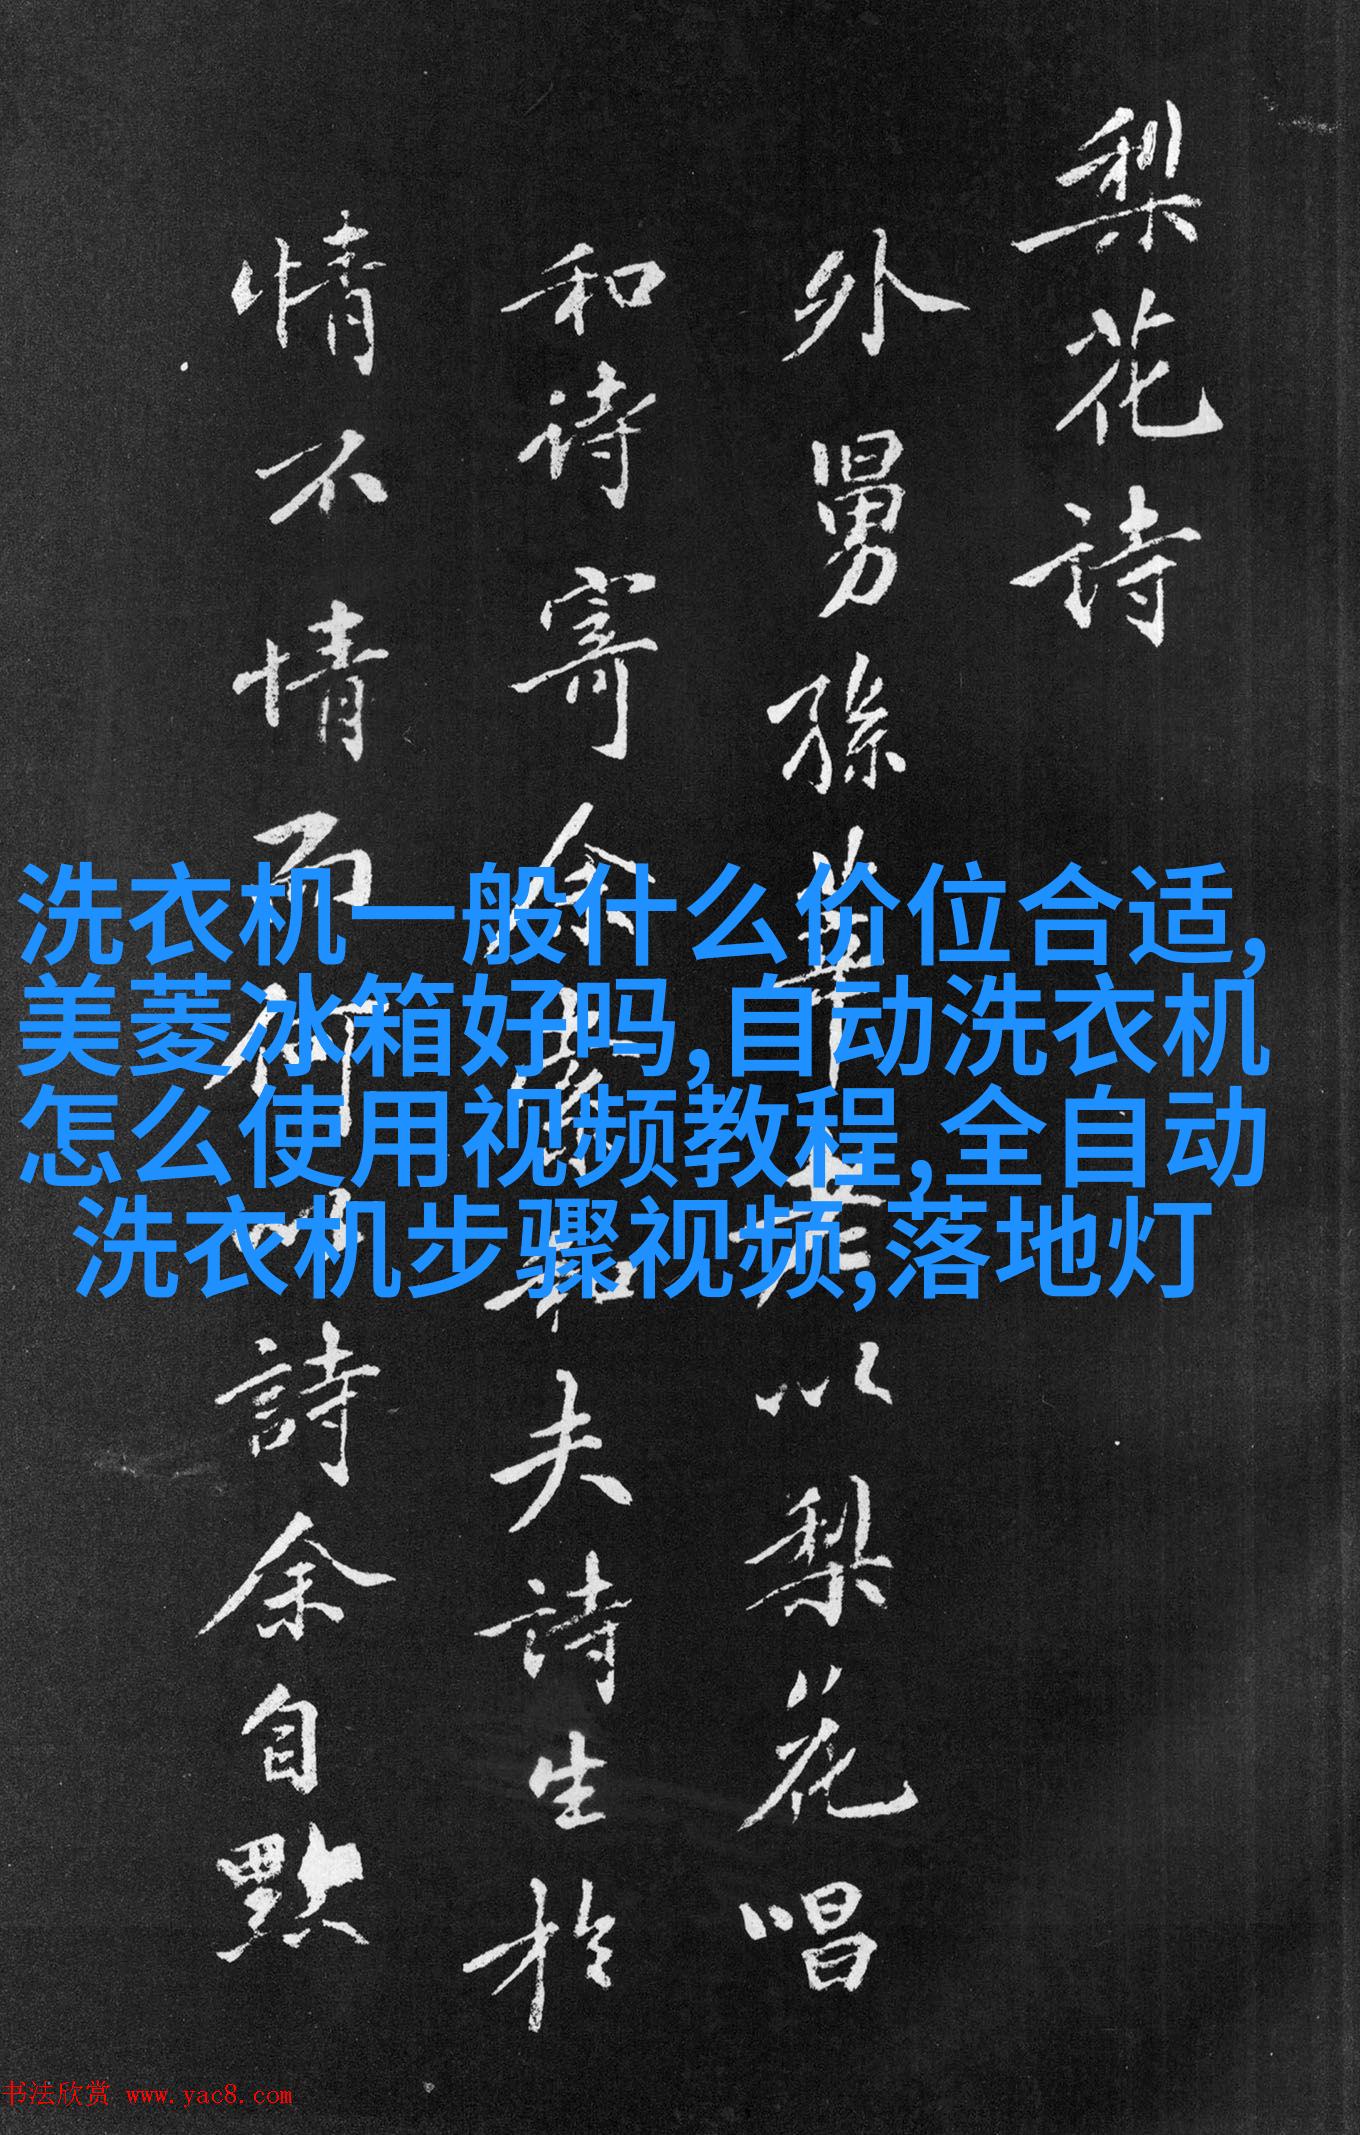 梨花诗
外舅孫莘老以梨花唱
和诗寄余 余和夫诗生於
情不情而何 詩余自點
洗衣机一般什么价位合适,
美菱冰箱好吗,自动洗衣机
怎么使用视频教程,全自动
洗衣机步骤视频,落地灯
书法欣赏 www.yac8.com